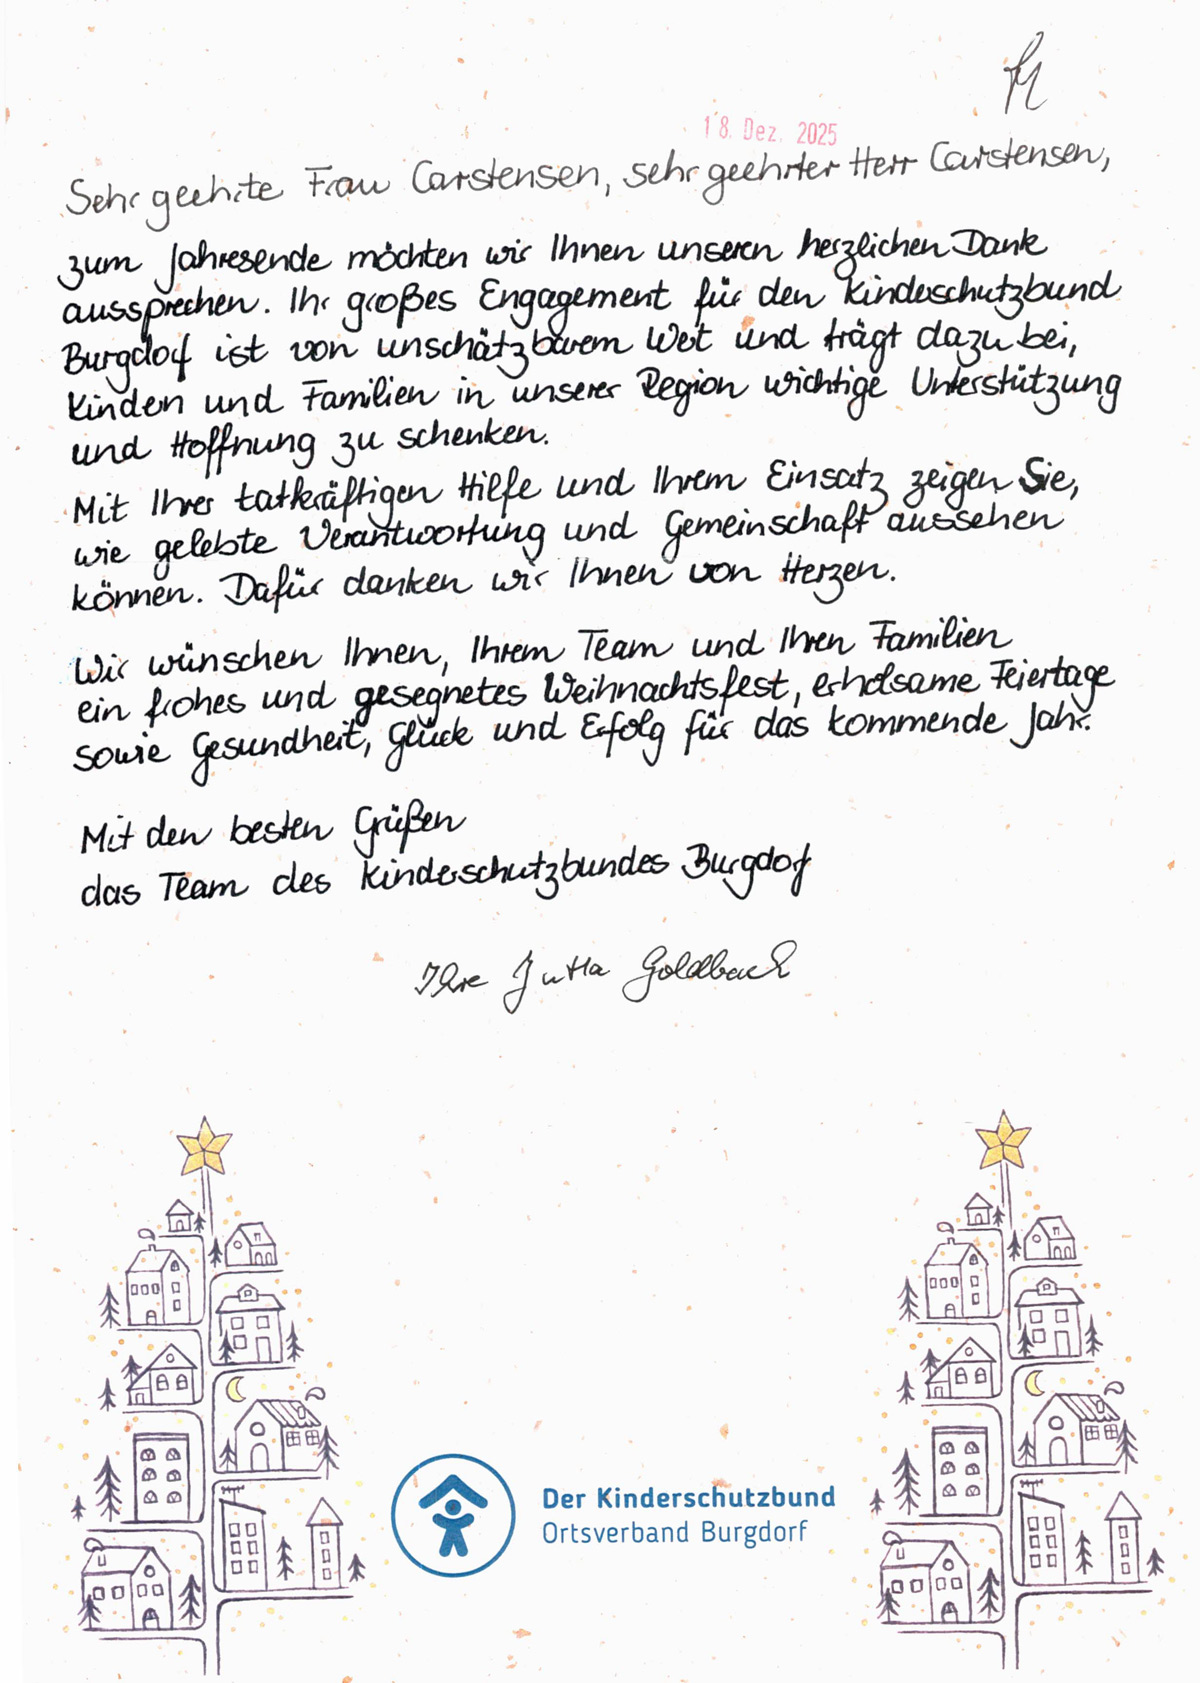 18. Dez. 2025
Sehr geehrte Frau Carstensen, sehr geehrter Herr Carstensen,
zum Jahresende möchten wir Ihnen unseren herzlichen Dank
aussprechen. Ihr großes Engagement für den Kinderschutzbund
Burgdorf ist von unschätzbarem Wert und trägt dazu bei,
Kindern und Familien in unserer Region wichtige Unterstützung
und Hoffnung zu schenken.
Mit Ihrer tatkräftigen Hilfe und Ihrem Einsatz zeigen Sie,
wie gelebte Verantwortung und Gemeinschaft aussehen
können. Dafür danken wir Ihnen von Herzen.
Wir wünschen Ihnen, Ihrem Team und Ihren Familien
ein frohes und gesegnetes Weihnachtsfest, erholsame Feiertage
sowie Gesundheit, Glück und Erfolg für das kommende Jahr.
Mit den besten Grüßen
das Team des Kinderschutzbundes Burgdorf
Ihre Jutta Goldbach
Der Kinderschutzbund
Ortsverband Burgdorf